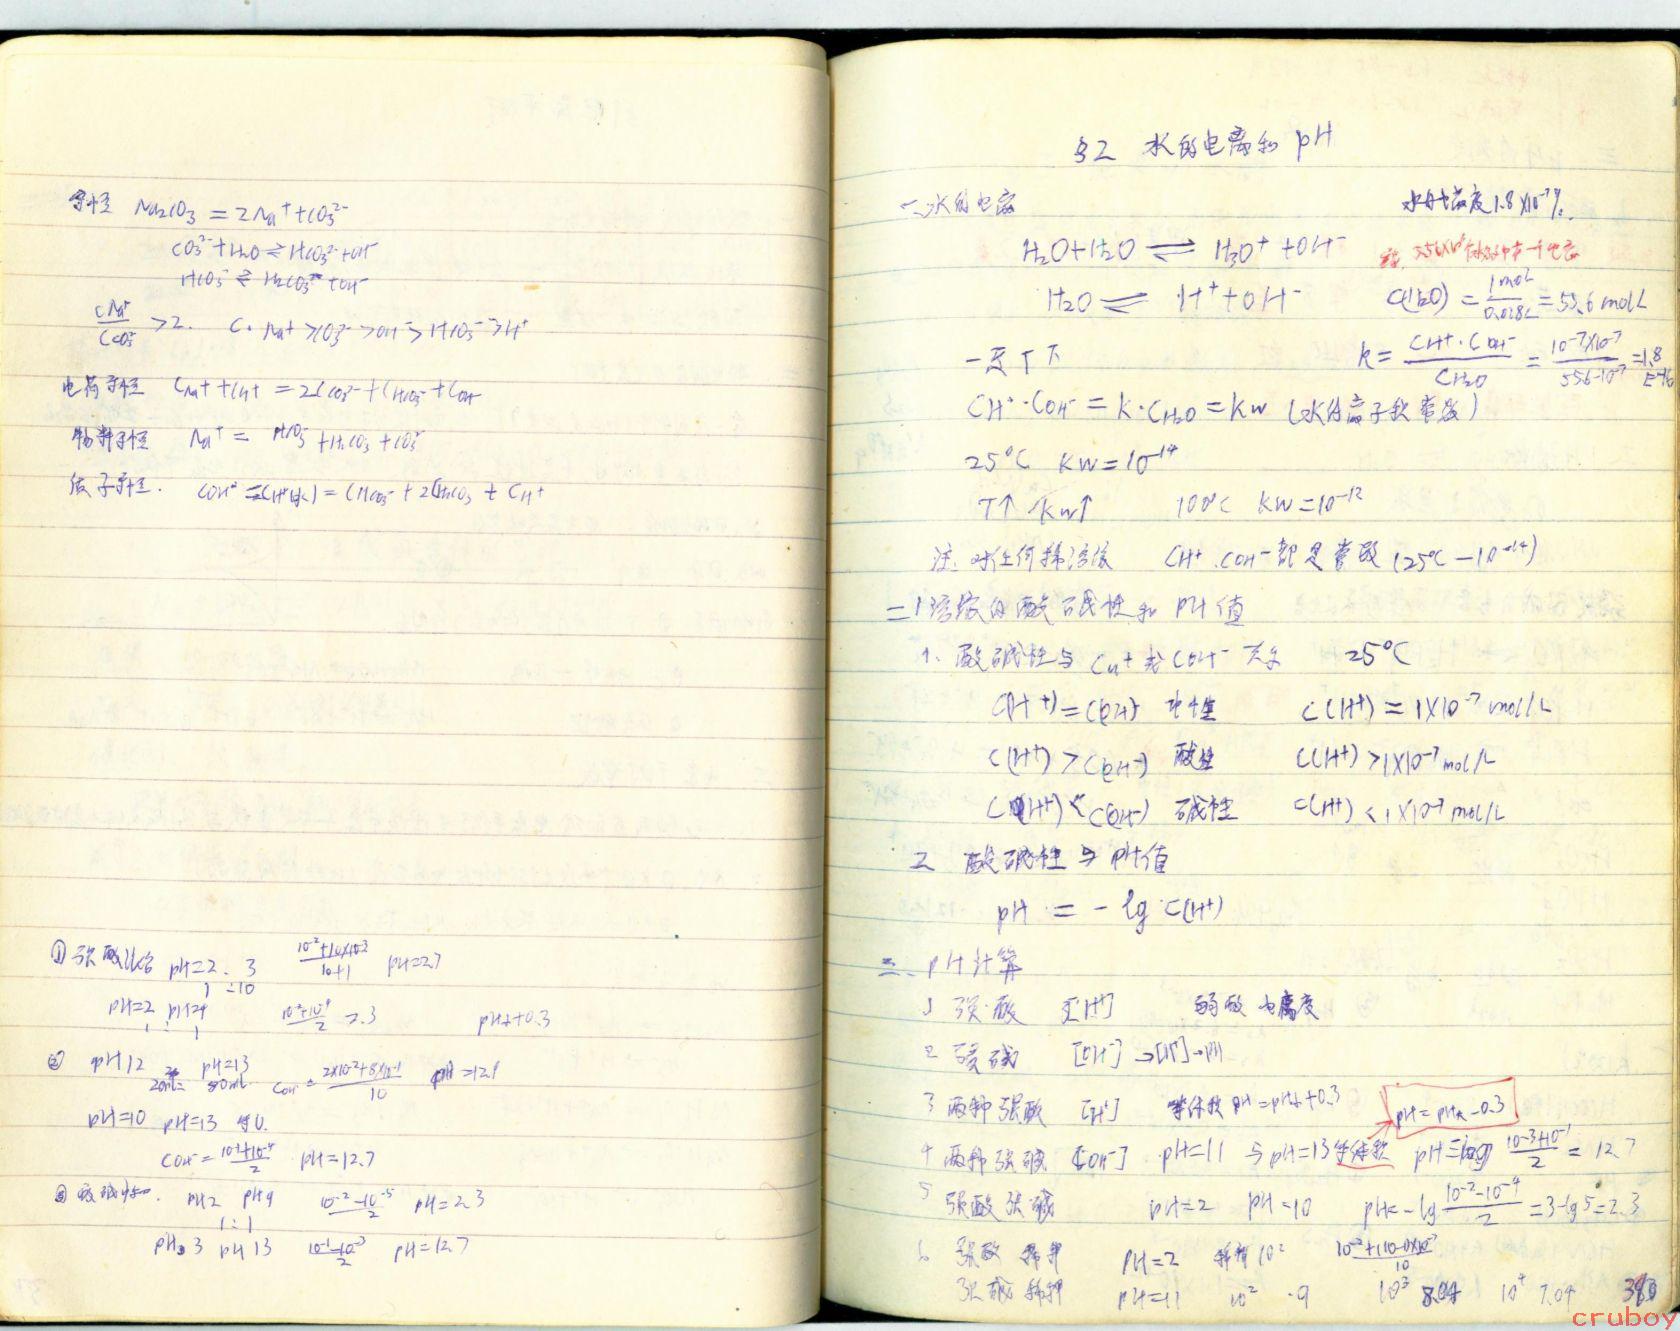 守恒 Na2CO3 = 2Na⁺ + CO3²⁻
CO3²⁻ + H2O ⇌ HCO3⁻ + OH⁻
HCO3⁻ ⇌ H2CO3 + OH⁻
CNa⁺/CCO3²⁻ > 2. C. Na⁺ > CO3²⁻ > OH⁻ > HCO3⁻ > H⁺
电荷守恒 CNa⁺ + CH⁺ = 2CCO3²⁻ + CHCO3⁻ + COH⁻
物料守恒 Na⁺ = HCO3⁻ + H2CO3 + CO3²⁻
质子守恒. COH⁻ = C(H⁺) = CHCO3⁻ + 2CH2CO3 + CH⁺
① 强酸混合 pH=2. 3 (10⁻²+10×10⁻³)/(10+1) pH=2.7
1 : 10
pH=2 pH=4 (10⁻²+10⁻⁴)/2 2.3 pH小+0.3
1 : 1
② pH12 pH=13 COH⁻ = (2×10⁻²+8×10⁻¹)/10 pH=12.9
20mL 80mL
pH=10 pH=13 等V.
COH⁻ = (10⁻¹+10⁻⁴)/2 pH=12.7
③ 酸碱中和. pH2 pH9 (10⁻²-10⁻⁵)/2 pH=2.3
1:1
pH 3 pH 13 (10⁻¹-10⁻³)/2 pH=12.7
§2 水的电离和 pH
一、水的电离 水的电离度1.8×10⁻⁷%.
H2O+H2O ⇌ H3O⁺ + OH⁻
H2O ⇌ H⁺+OH⁻ C(H2O) = 1mol/0.018L = 55.6 mol/L
一定T下 K = CH⁺·COH⁻/CH2O = 10⁻⁷×10⁻⁷/55.6 = 1.8E-16
CH⁺·COH⁻ = K·CH2O = KW (水的离子积常数)
25°C KW=10⁻¹⁴
T↑ KW↑ 100°C KW=10⁻¹²
注: 对任何稀溶液 CH⁺.COH⁻都是常数 (25°C-10⁻¹⁴)
二、溶液的酸碱性和 pH值
1. 酸碱性与 CH⁺ 或 COH⁻ 关系 25°C
C(H⁺)=C(OH⁻) 中性 C(H⁺) = 1×10⁻⁷ mol/L
C(H⁺)>C(OH⁻) 酸性 C(H⁺)>1×10⁻⁷ mol/L
C(H⁺)<C(OH⁻) 碱性 C(H⁺)<1×10⁻⁷ mol/L
2 酸碱性与 pH值
pH = -lg C(H⁺)
三、pH计算
1 强酸 [H⁺] 弱酸 电离度
2 强碱 [OH⁻]→[H⁺]→pH
3 两种强酸 [H⁺] 等体积 pH=pH小+0.3 pH=pH大-0.3
4 两种强碱 [OH⁻] pH=11 与pH=13等体积 pH=-lg (10⁻³+10⁻¹)/2 = 12.7
5 强酸强碱 pH=2 pH=10 pH=-lg (10⁻²-10⁻⁴)/2 = 3-lg5=2.3
6 强酸 稀释 pH=2 稀释10²
强碱 稀释 pH=11 10² .9 10³ 8.04 10⁴ 7.04
cruboy